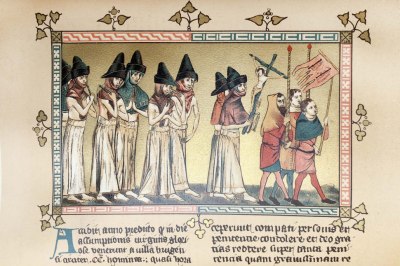 anno predicto in die
assumptionis virginis glori
ose venerunt a villa brugen
CC. homines quasi hora
ceperunt compati personis et
penitencie condolere et deo gra
tias reddere super tanta peni
tencia quam gravissimam re